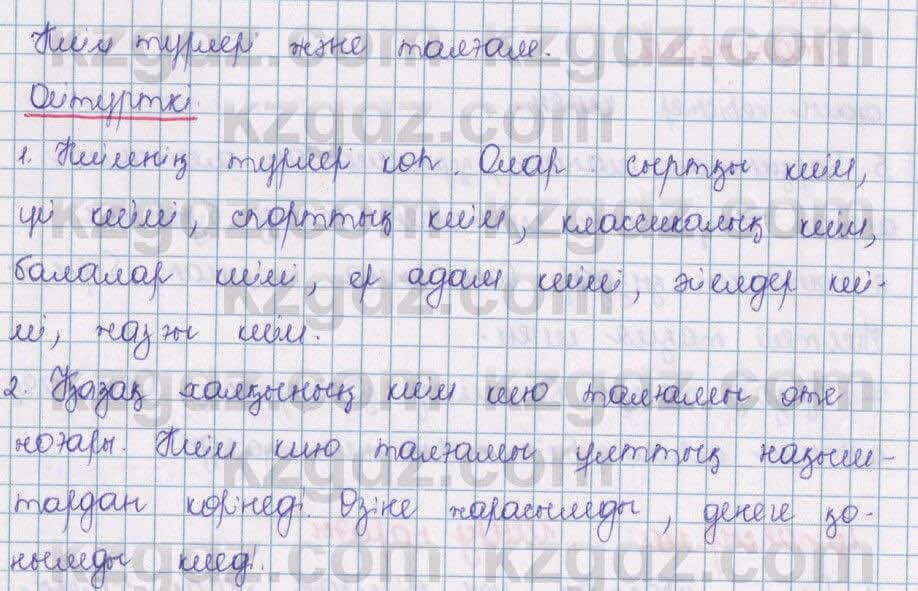 Киім түрлері және талғам.
Ой түрткі.
1. Киімнің түрлері көп. Олар сыртқы киім,
үй киімі, спорттық киім, классикалық киім,
балалар киімі, ер адам киімі, әйелдер киі-
мі, жазғы киім.
2. Қазақ халқының киім кию талғамы өте
жоғары. Киім кию талғамы ұлттық нақыш-
тардан көрінеді. Өзіне жарасымды, денеге қо-
нымды киеді.
kzgdz.com